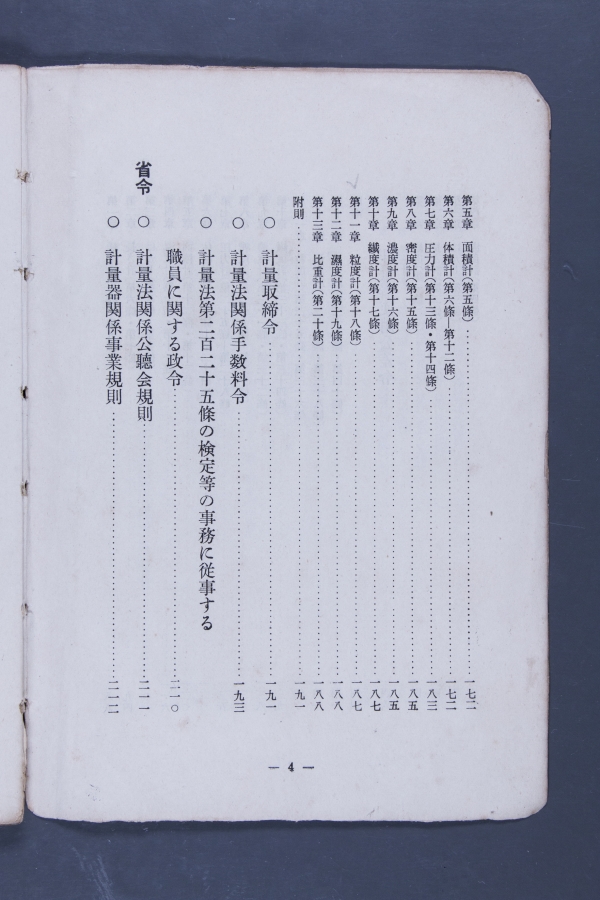 第五章　面積計(第五條)……一七二
第六章　体積計(第六條—第十二條)……一七二
第七章　圧力計(第十三條・第十四條)……一八三
第八章　密度計(第十五條)……一八五
第九章　濃度計(第十六條)……一八五
第十章　繊度計(第十七條)……一八七
第十一章　粒度計(第十八條)……一八七
第十二章　濕度計(第十九條)……一八八
第十三章　比重計(第二十條)……一八八
附則……一九一
○　計量取締令……一九一
○　計量法関係手数料令……一九三
○　計量法第二百二十五條の検定等の事務に従事する
職員に関する政令……二一〇
省令
○　計量法関係公聽会規則……二一一
○　計量器関係事業規則……二一二
— 4 —